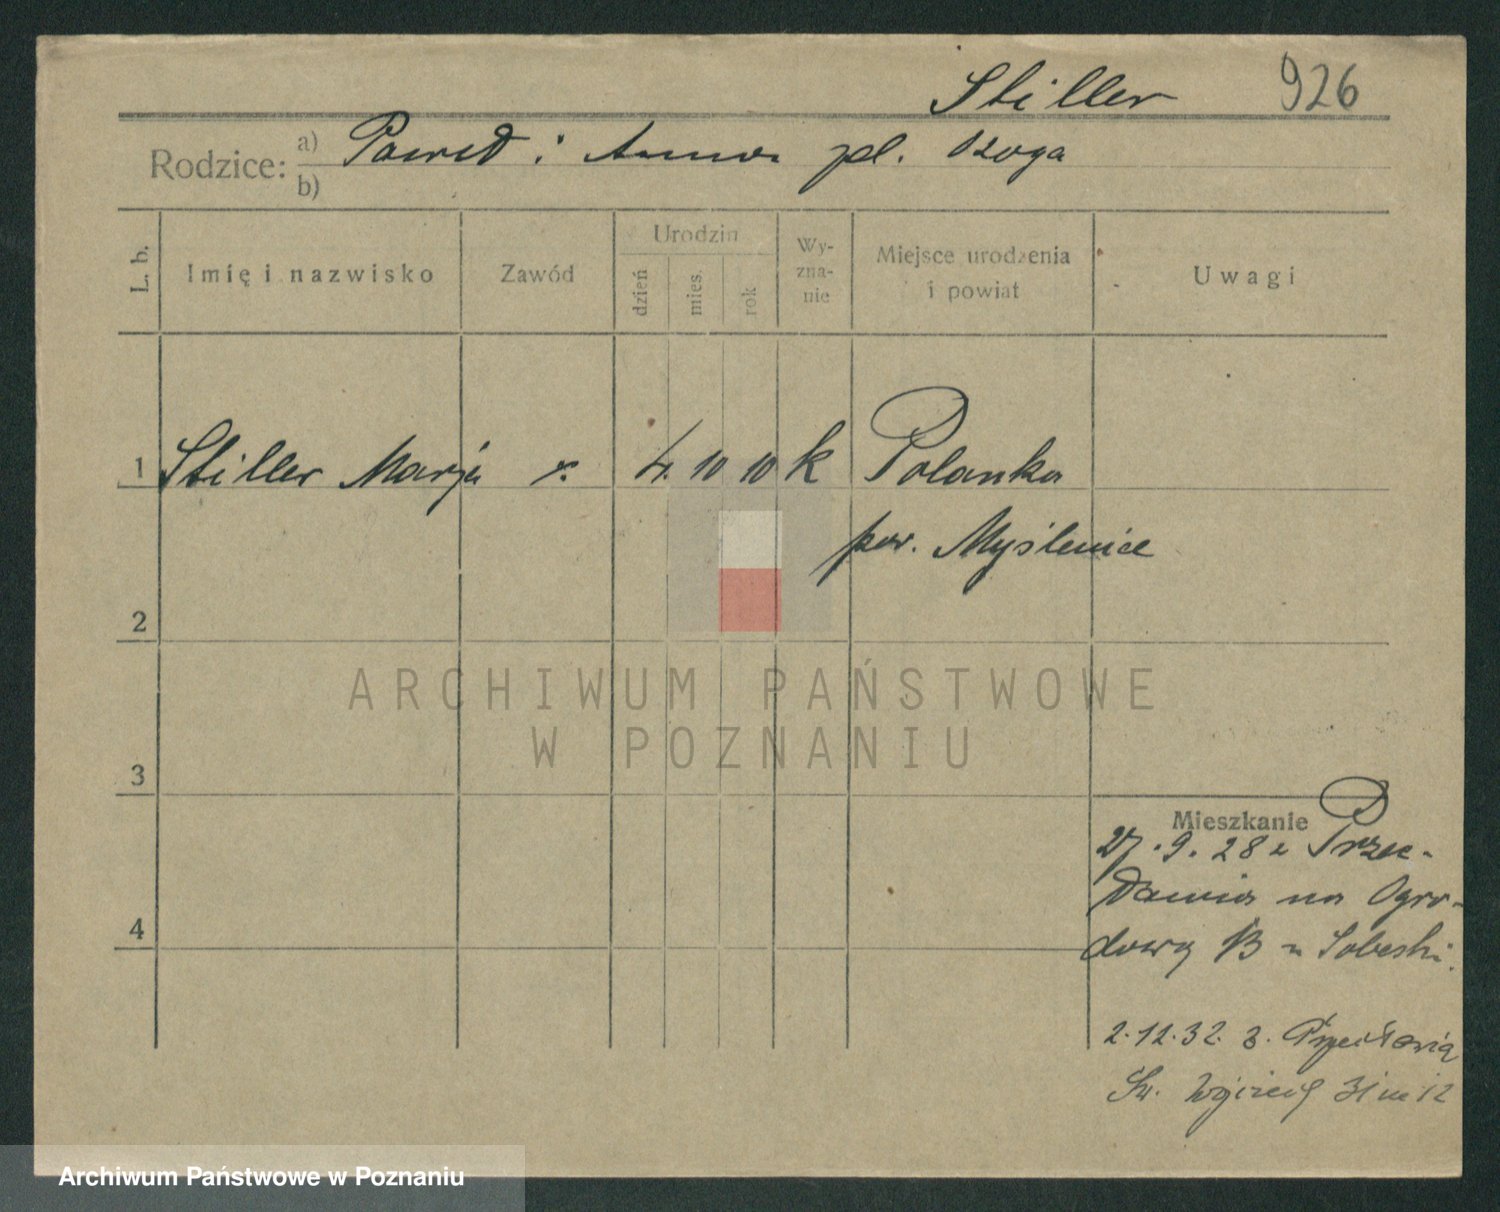 Stiller 926
Rodzice: a) Paweł i Anna pl.
b)
L. b. Imię i nazwisko Zawód Urodzin dzień mies. rok Wy-zna-nie Miejsce urodzenia i powiat Uwagi
1 Stiller Marja x. 4. 10 10 k Polanka
pow. Myślenice
2
ARCHIWUM PAŃSTWOWE
W POZNANIU
3
Mieszkanie
27.9.28 z Przec-
na Ogro-
dową 13 Sobeski.
4
2.12.32. z.
Św. Wojciech 31 m 12
Archiwum Państwowe w Poznaniu